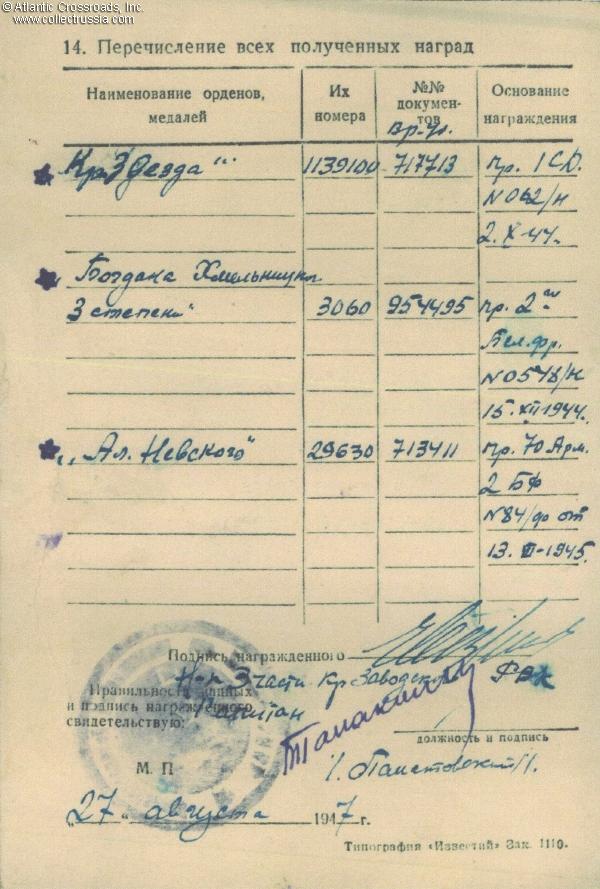 © Atlantic Crossroads, Inc.
www.collectrussia.com
14. Перечисление всех полученных наград
Наименование орденов, медалей
Их номера
№№ документов
Вр. уд.
Основание награждения
"Кр. Звезда" 1139100 717713 пр. 1 СД.
N 062/н
2.X-44.
"Богдана Хмельницк
3 степени" 3060 954495 пр. 2
Бел. фр.
N 0578/н
15.XII 1944.
"Ал. Невского" 29630 713411 пр. 70 Арм.
2 БФ
N 84/ф от
13. -1945.
Подпись награжденного
Н-к 3 части Кр Заводск РВК
Правильность данных
и подпись награжденного
свидетельствую:
Капитан
должность и подпись
М. П
"27" августа 1947 г.
Типография «Известий» Зак. 1110.